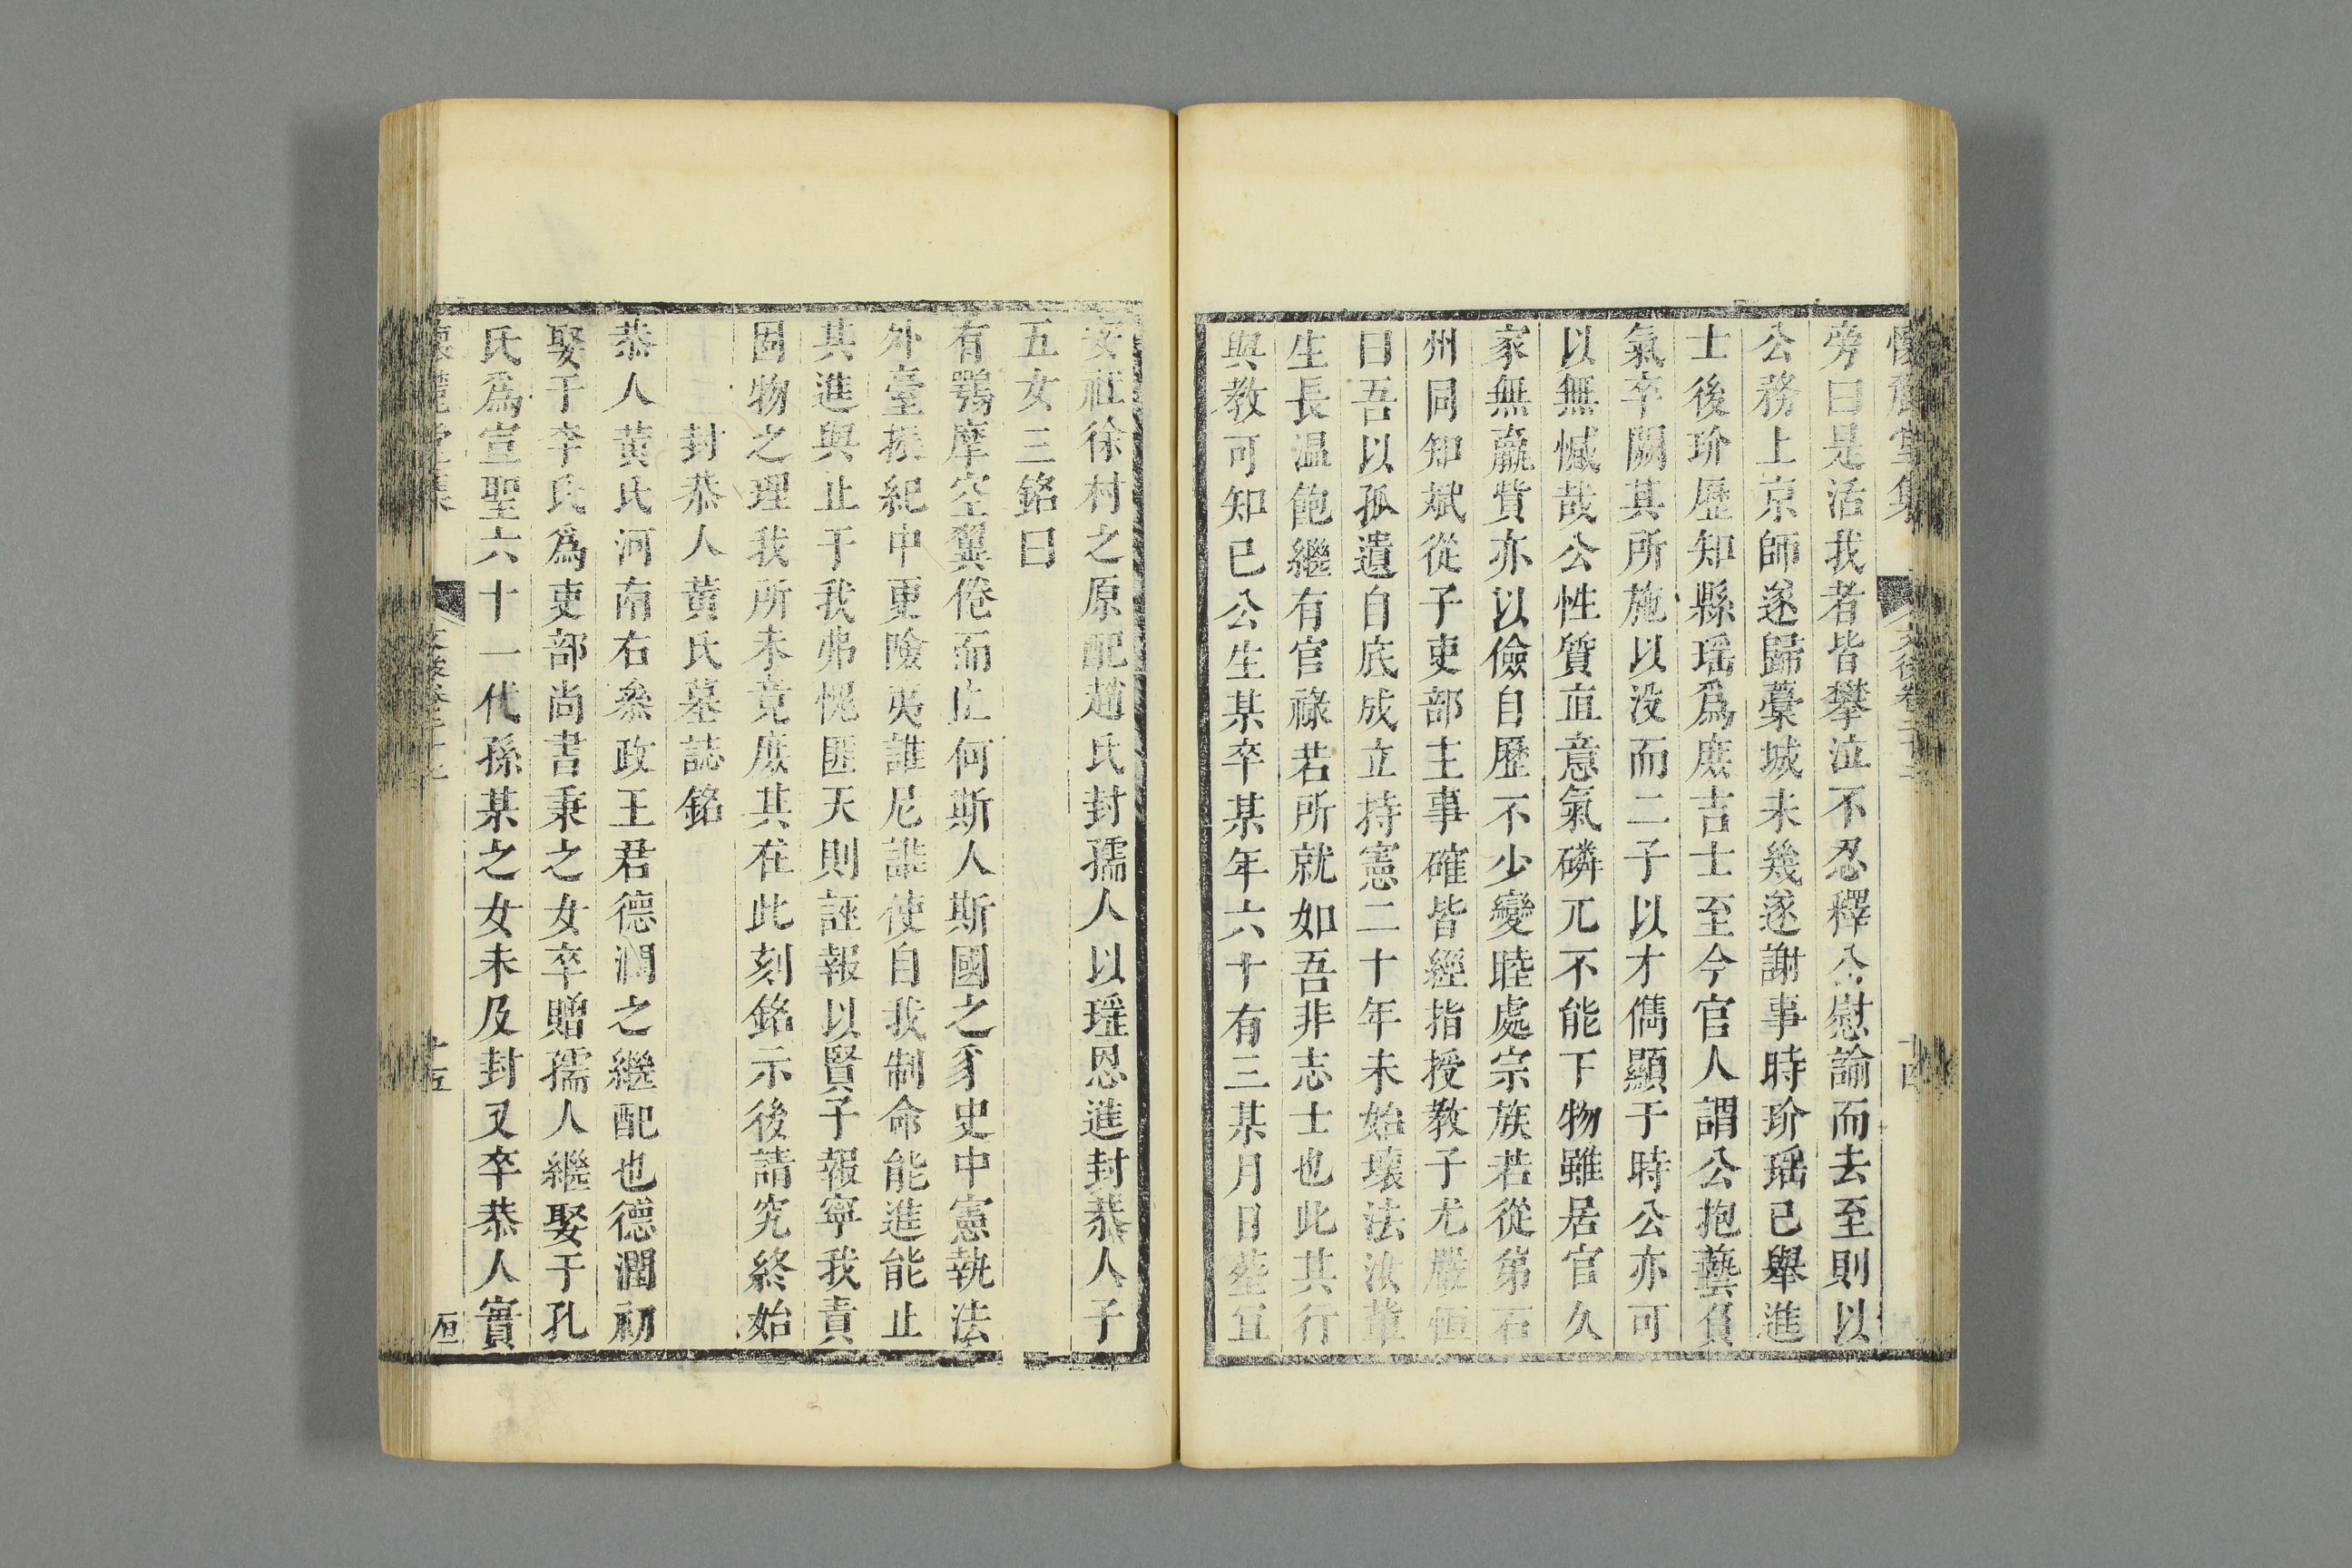 懷麓堂集 文後卷二十
旁曰是活我者皆攀泣不忍釋公慰諭而去至則以
公務上京師遂歸藁城未幾遂謝事時玠瑶已舉進
士後玠歷知縣瑶爲庶吉士至今官人謂公抱藝負
氣卒閼其所施以没而二子以才儁顯于時公亦可
以無憾哉公性質直意氣磷兀不能下物雖居官久
家無贏貲亦以儉自歷不少變睦處宗族若從弟石
州同知斌從子吏部主事確皆經指授敎子尤嚴恒
曰吾以孤遺自底成立持憲二十年未始壞法汝輩
生長温飽繼有官祿若所就如吾非志士也此其行
與教可知已公生某卒某年六十有三某月日塟宜
安社徐村之原配趙氏封孺人以瑶恩進封恭人子
五女三銘曰
有鶚摩空翼倦而止何斯人斯國之豸史中憲執法
外臺振紀中更險夷誰尼誰使自我制命能進能止
其進與止于我弗愧匪天則誣報以賢子報寧我責
固物之理我所未竟庶其在此刻銘示後請究終始
封恭人黄氏墓誌銘
恭人黄氏河南右叅政王君德潤之繼配也德潤初
娶于李氏爲吏部尚書秉之女卒贈孺人繼娶于孔
氏爲宣聖六十一代孫某之女未及封又卒恭人實